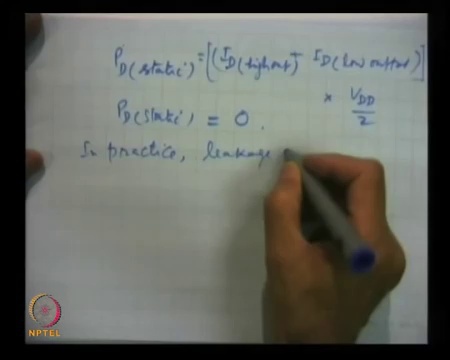 P_D(static) = [(I_D(high out) + I_D(low output)]
× V_DD/2
P_D(static) = 0.
In practice, leakage
NPTEL